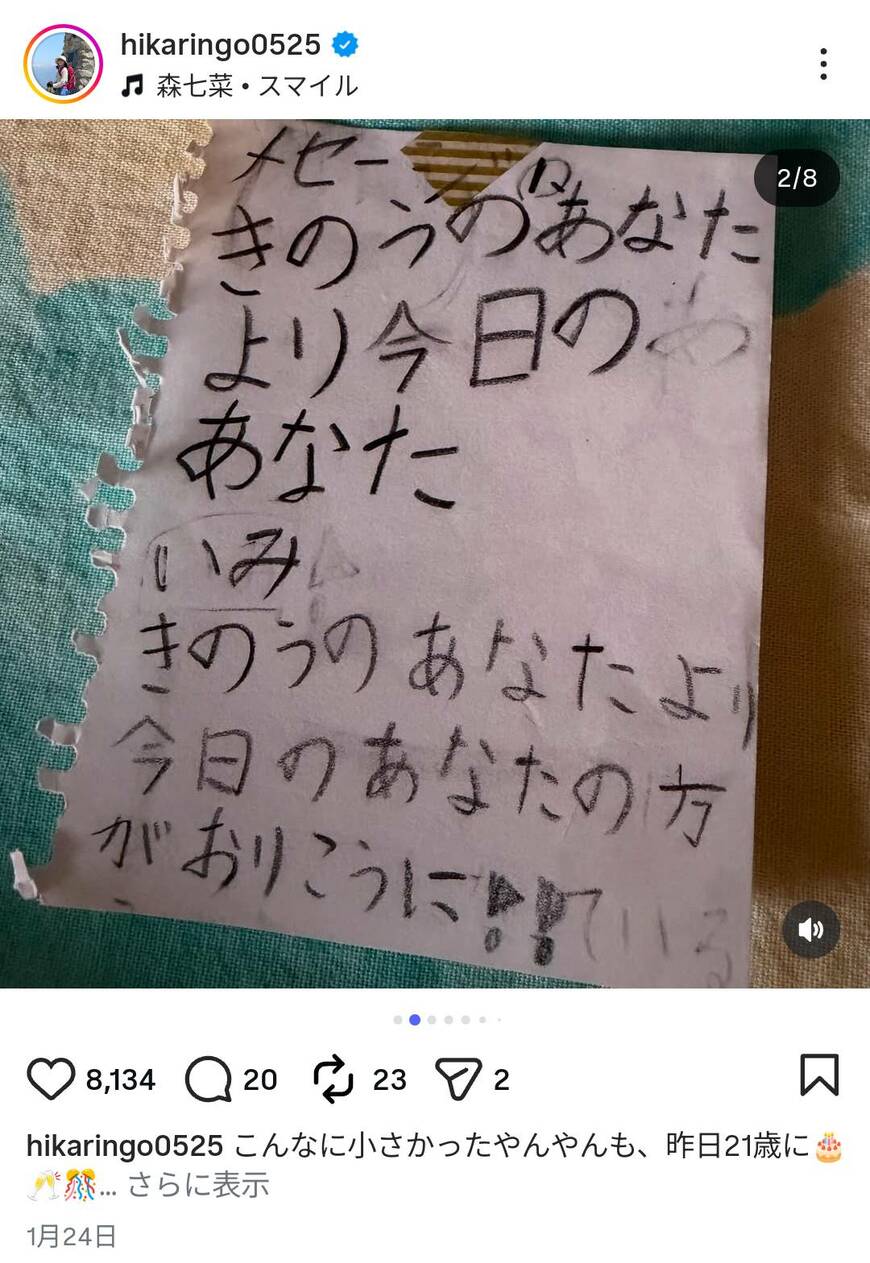 hikaringo0525
森七菜・スマイル
2/8
メセージ
きのうのあなた
より今日の
あなた
いみ
きのうのあなたより
今日のあなたの方
がおりこうに!!
8,134 20 23 2
hikaringo0525 こんなに小さかったやんやんも、昨日21歳に🎂
🥂🎊... さらに表示
1月24日